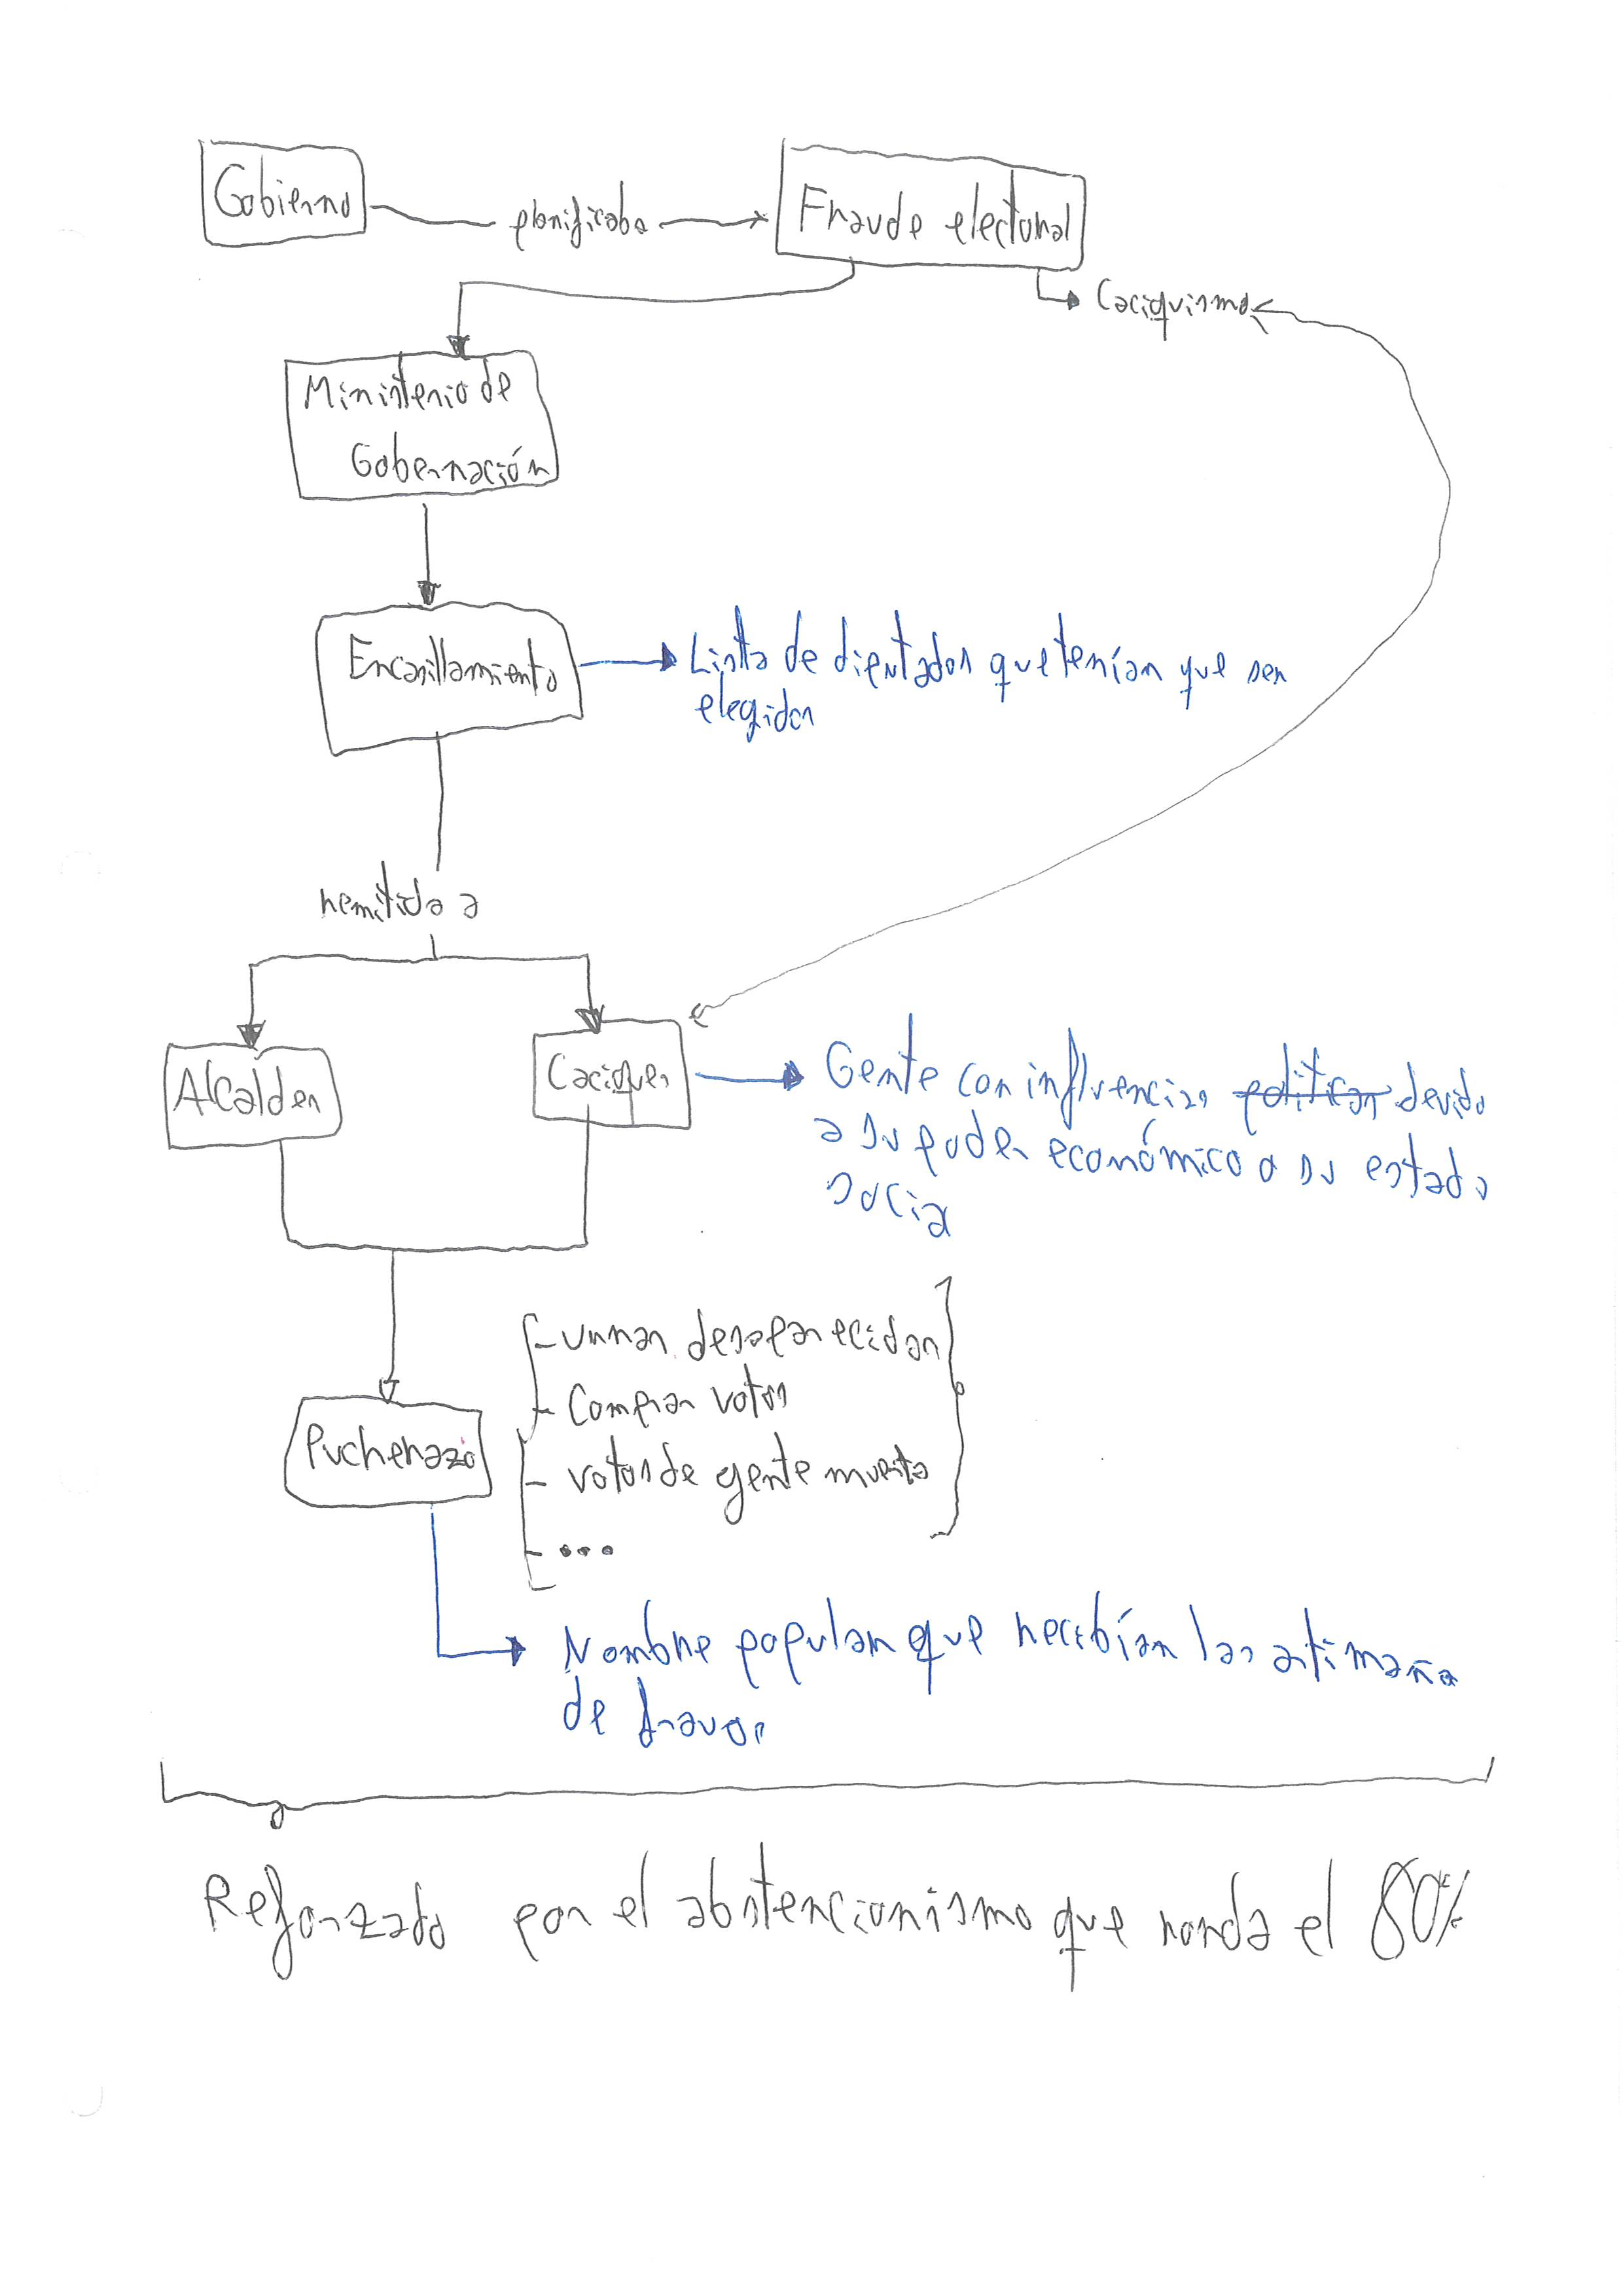 Gobierno
planificaba
Fraude electoral
Caciquismo
Ministerio de
Gobernación
Encasillamiento
Lista de dieutados que tenían que ser
elegidos
remitido a
Alcaldes
Caciques
Gente con influencias politicas devido
a su poder económico o su estado
socia
- urnas desaparecidas
- Comprar votos
- votos de gente muerta
- ...
Pucherazo
Nombre popular que recibían las artimaña
de
Reforzado por el abstencionismo que ronda el 80%